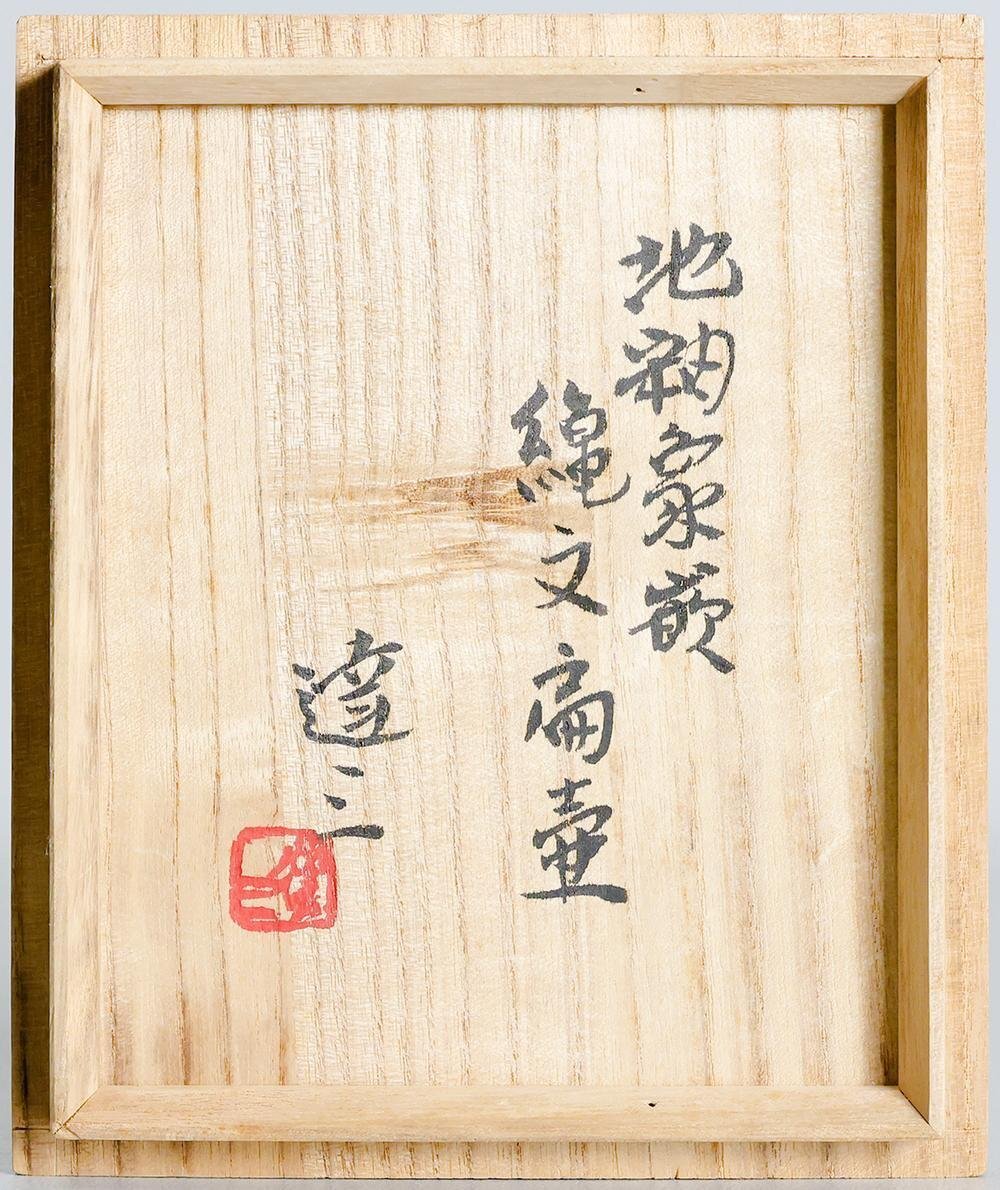 地釉象嵌
縄文扁壷
達三